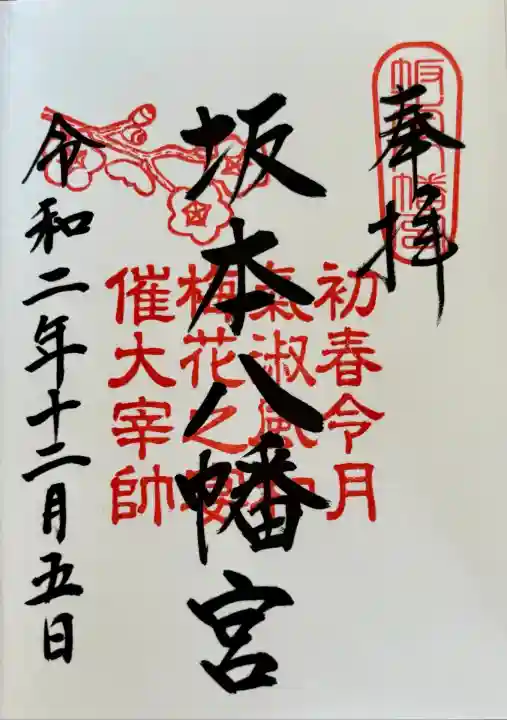 奉拝
坂本八幡宮
初春令月
氣淑風和
梅花之宴
催大宰帥
坂本八幡宮
令和二年十二月五日